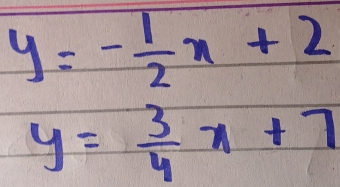 y = -1/2 x + 2
y = 3/4 x + 7